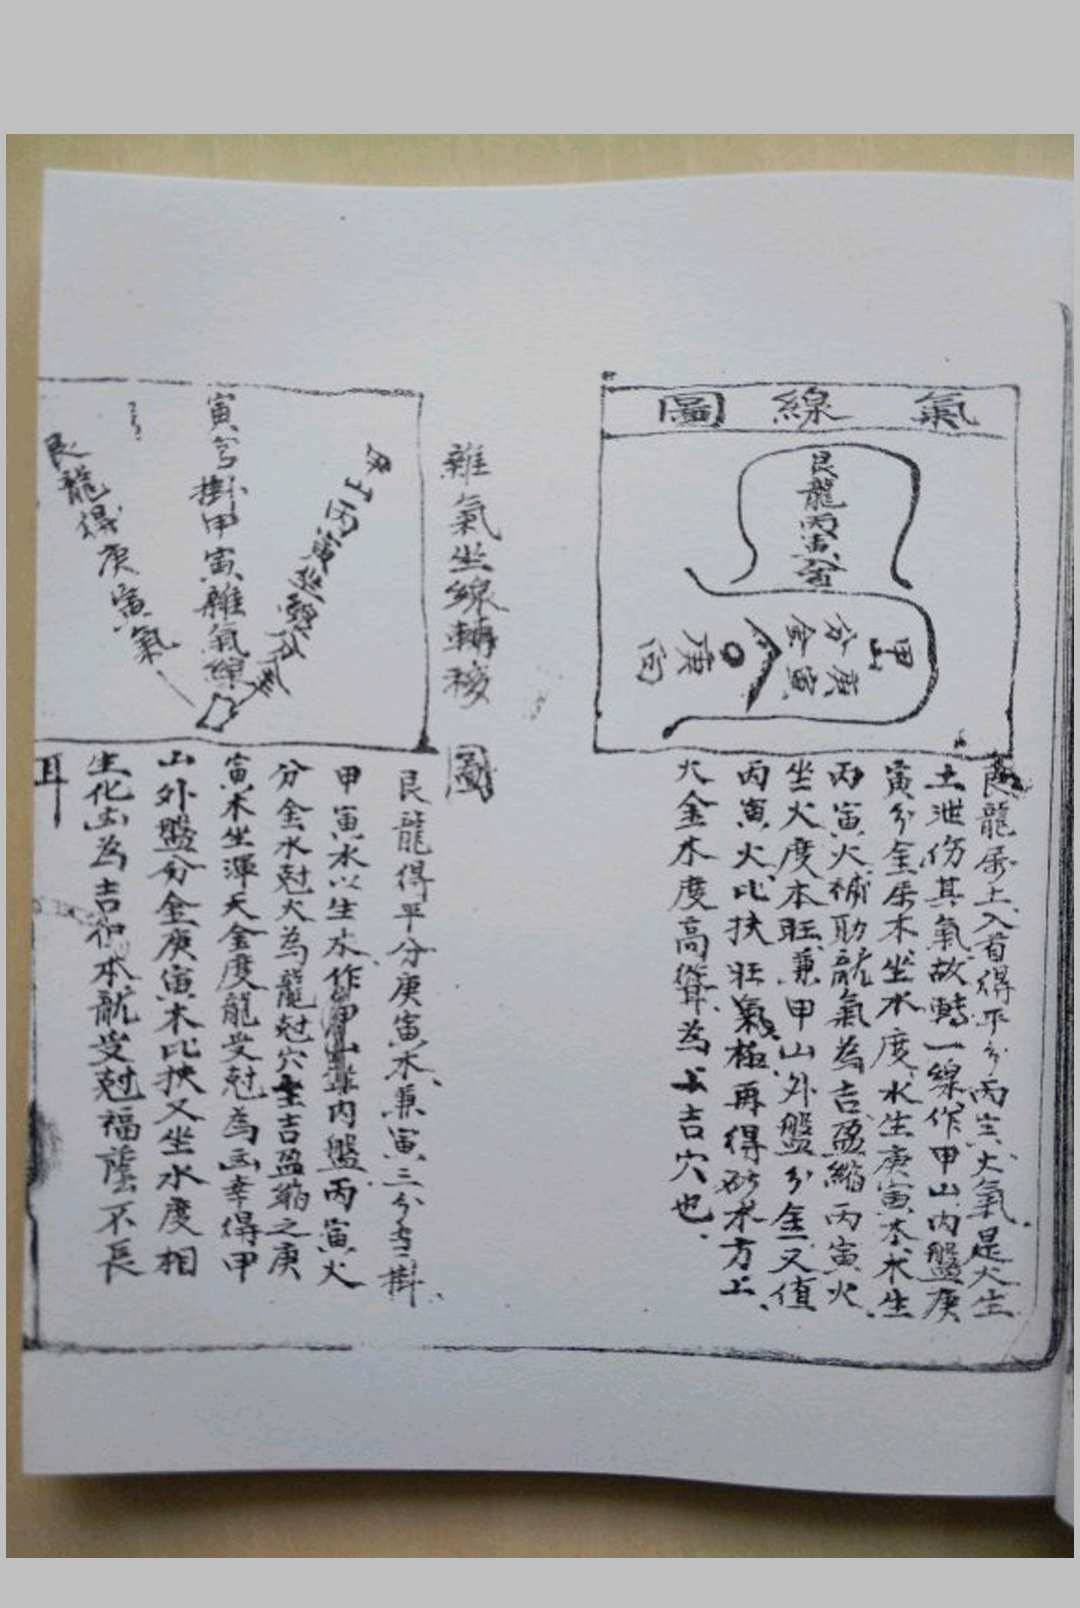 氣線圖
艮龍丙寅金
甲山
庚寅
分金
庚向
艮龍屬土入首得平分丙寅火氣是火生
土泄伤其氣故轉一線作甲山内盤庚
寅分金屬木坐水度水生庚寅本木生
丙寅火補助龍氣為吉盈縮丙寅火
坐火度本旺兼甲山外盤分金又值
丙寅火比扶旺氣極再得砂木方上
火金木度高聳為上吉穴也
雜氣坐線轉移圖
山丙寅坐線分金
寅兮掛甲寅雜氣線
艮龍得庚寅氣
艮龍得平分庚寅木兼寅三分掛
甲寅水以生水作甲山内盤丙寅火
分金水尅火為龍尅穴吉盈縮之庚
寅木坐渾天金度龍受尅為凶幸得甲
山外盤分金庚寅木比扶又坐水度相
生化凶為吉但本龍受尅福蔭不長
耳